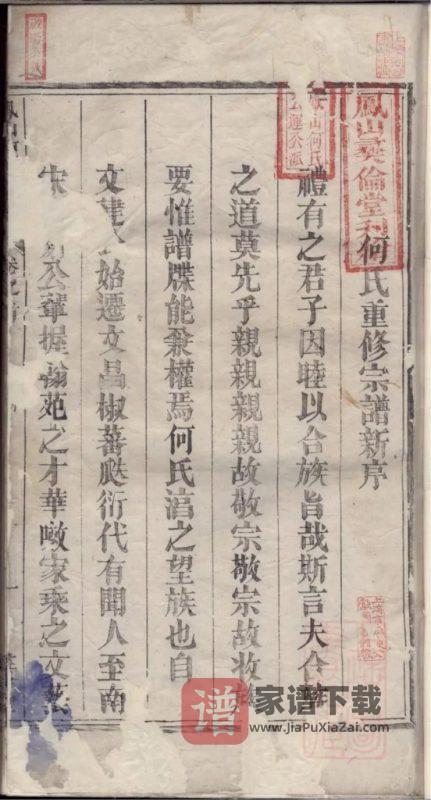 鳳山彝倫堂
何氏重修宗譜新序
鳳山何氏
公運公派
禮有之君子因睦以合族旨哉斯言夫合
之道莫先乎親親親親故敬宗敬宗故收
要惟譜牒能兼權焉何氏涫之望族也自
文建始遷文昌椒蕃衍代有聞人至南
宋公輩握翰苑之才華噉家乘之文獻
谱
家谱下载
www.JiaPuXiaZai.com